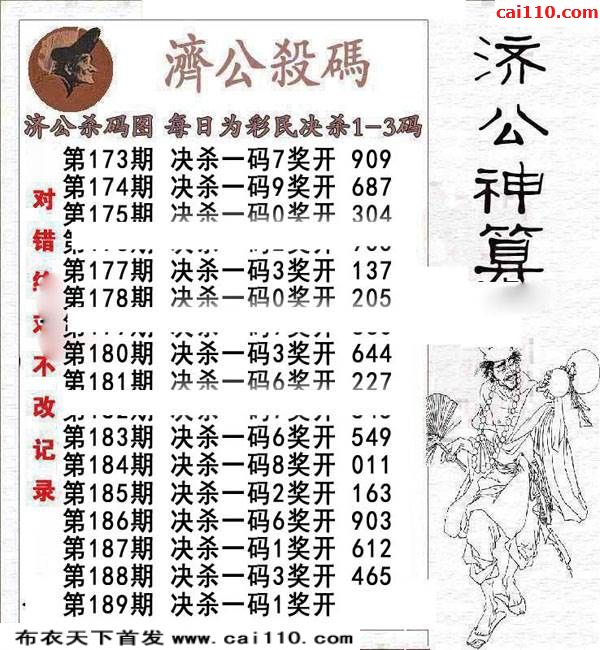 cai110.com
濟公殺碼
济公神算
济公杀码图 每日为彩民决杀1-3码
第173期 决杀一码7奖开 909
第174期 决杀一码9奖开 687
第175期 决杀一码0奖开 304
第177期 决杀一码3奖开 137
第178期 决杀一码0奖开 205
第180期 决杀一码3奖开 644
第181期 决杀一码6奖开 227
第183期 决杀一码6奖开 549
第184期 决杀一码8奖开 011
第185期 决杀一码2奖开 163
第186期 决杀一码6奖开 903
第187期 决杀一码1奖开 612
第188期 决杀一码3奖开 465
第189期 决杀一码1奖开
对错 不改记录
布衣天下首发 www.cai110.com